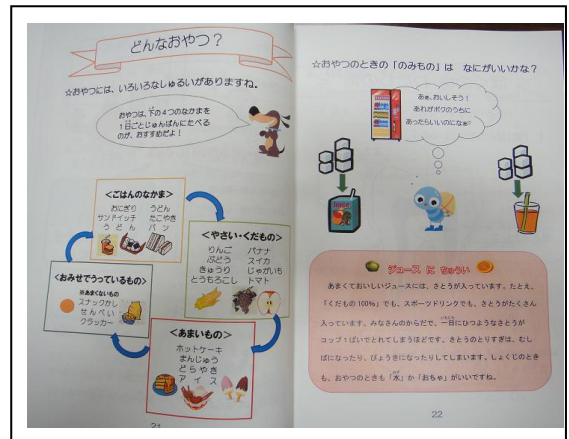 どんなおやつ？
☆おやつには、いろいろなしゅるいがありますね。
おやつは、下の4つのなかまを
1日ごとじゅんばんにたべる
のが、おすすめだよ！
＜ごはんのなかま＞
おにぎり うどん
サンドイッチ たこやき
うどん パン
＜やさい・くだもの＞
りんご バナナ
ぶどう スイカ
きゅうり じゃがいも
とうもろこし トマト
＜おみせでうっているもの＞
※あまくないもの
スナックかし
せんべい
クラッカー
＜あまいもの＞
ホットケーキ
まんじゅう
どらやき
アイス
21
☆おやつのときの「のみもの」は なにがいいかな？
あぁ、おいしそう！
あれがボクのうちに
あったらいいのになぁ
ジュース に ちゅうい
あまくておいしいジュースには、さとうが入っています。たとえ、
「くだもの100%」でも、スポーツドリンクでも、さとうがたくさん
入っています。みなさんのからだで、一日にひつようなさとうが
コップ1ぱいでとれてしまうほどです。さとうのとりすぎは、むし
ばになったり、びょうきになったりしてしまいます。しょくじのとき
も、おやつのときも「水」か「おちゃ」がいいですね。
22